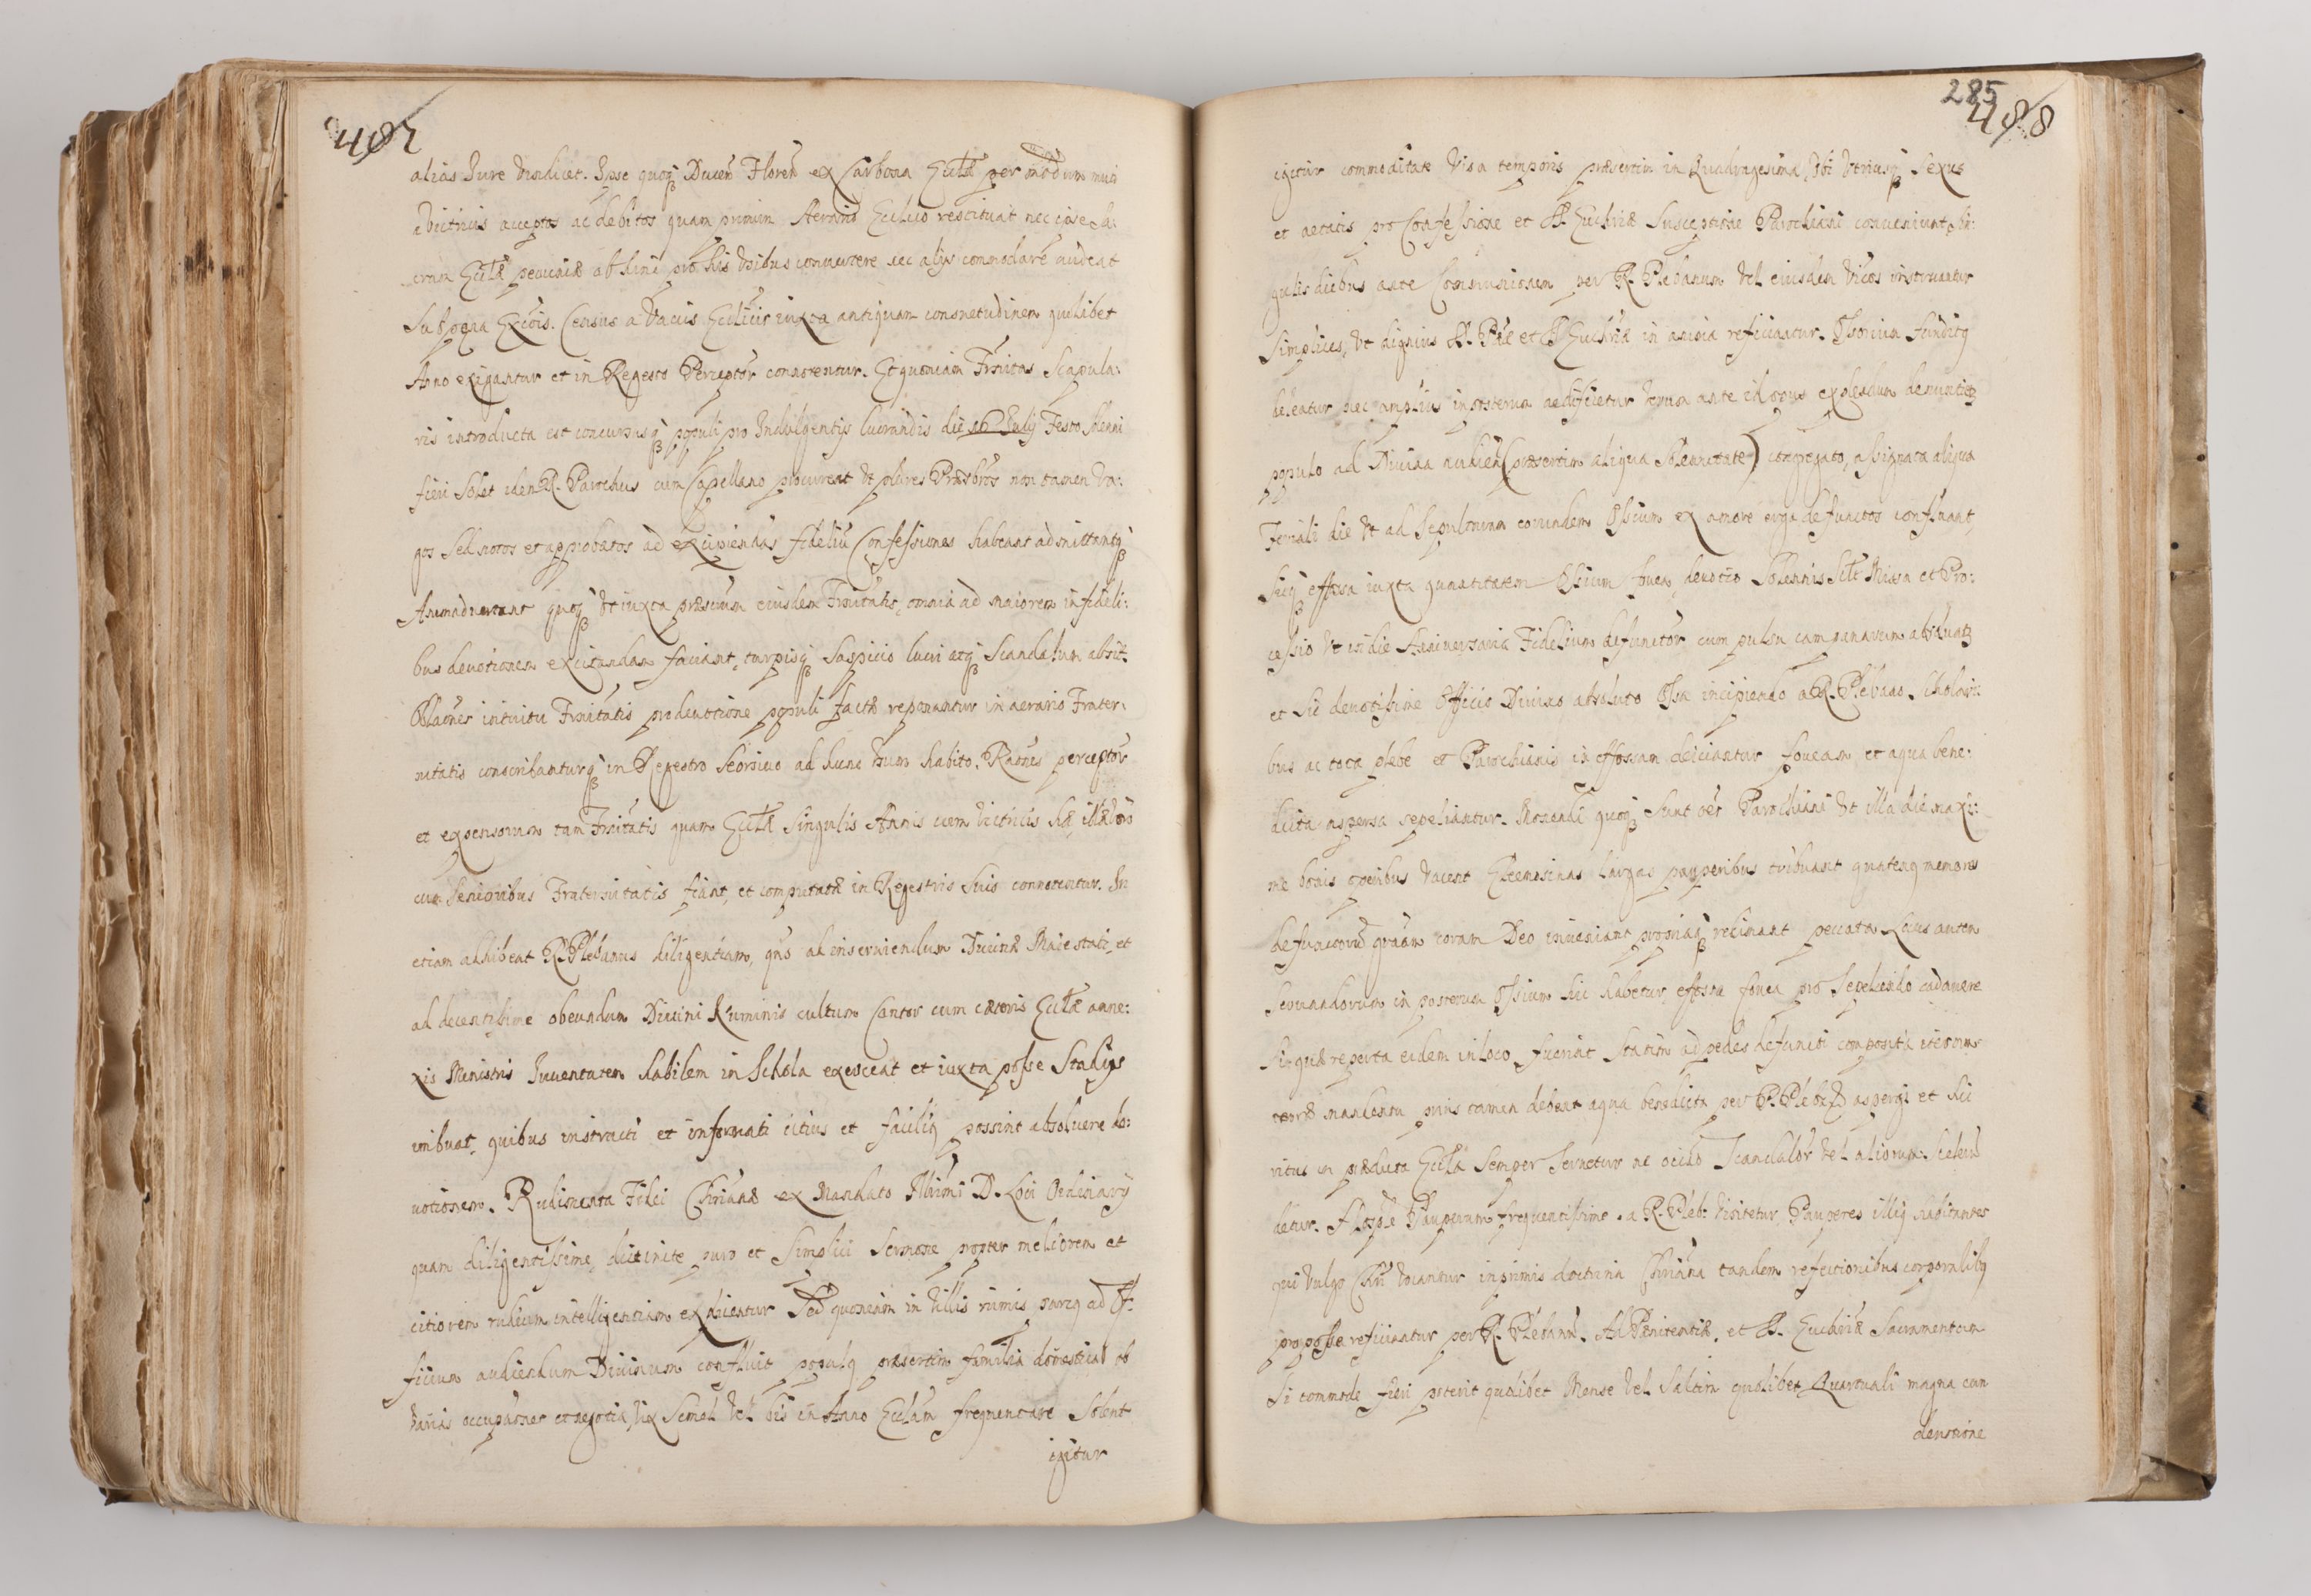 487
alias Iure vindicet. Ipse quoq Ducen Floren ex Carbona Eccla per modum mui
a Victricis acceptos ac debitos quam primum Aerario Ecclico restituat nec ipse
Ecclæ pecuniæ abhinc pro his usibus convertere nec alijs commodare audeat
Sub pœna Excois. Census a Ecclicis iuxta antiquam consuetudinem quolibet
Anno exigantur et in Regesto Perceptor connotentur. Et quoniam Frnitas Scapula:
ris introducta est concursusq populi pro Indulgentijs lucrandis die 16 Iulij Festo Solenni
fieri Solet idem R. Parochus cum Capellano procureat ut plures Præsbros non tamen va:
gos Sed notos et approbatos ad excipiendas fideliu Confessiones habeant admittantq
Animadvertant quoq ut iuxta præscrium eiusdem Frnitatis, omnia ad maiorem in fideli:
bus devotionem excitandam faciant, turpisq Suspicio lucri atq Scandalum absit.
Oblaones intuitu Frnitatis pro devotione populi factæ reponantur in aerario Frater:
nitatis conscribanturq in Regestro Seorsivo ad hunc usum habito. Raones perceptor
et expensorum tam Frnitatis quam Ecclæ Singulis Annis cum Vitricis hæ, illæ vero
cum Senioribus Fraternitatis fiant, et computatæ in Regestris Suis connotentur. In
etiam adhibeat R. Plebanus diligentiam, quo ad inserviendum Divinæ Maiestati, et
ad decentissime obeundum Divini Numinis cultum Cantor cum cæteris Ecclæ anne:
xis Ministris Iuventutem habilem in Schola exerceat et iuxta posse Studijs
imbuat, quibus instructi et informati citius et faciliq possint absolvere de:
votionem. Rudimenta Fidei Chrianæ ex Mandato Illmi D. Loci Ordinarij
quam diligentissime, distincte puro et Simplici Sermone propter meliorem et
citiorem rudium intelligentiam explicentur Sed quoniam in Villis nimis parcq ad Of:
ficium audiendum Divinum confluit populq præsertim familia domestica ob
varias occupaones et negotia, vix Semel vel bis in Anno Ecclam frequentare Solent
igitur
285
488
igitur commoditate visa temporis præsertim in Quadragesima, ubi utriusq Sexus
et aetatis pro Confessione et S. Euchriæ Susceptione Parochiani conveniunt, Sin:
gulis diebus ante Communionem per R. Plebanum vel eiusdem Vicos instruantur
Simplices, ut dignius S. Pnæ et S Euchriæ in animia reficiantur. Ossorium funditq
deleatur nec amplius in posterum aedificetur verum ante id opus explendum denuntietz
populo ad Divina audien (præsertim aliqua Solennitate) congregato, assignata aliqua
Feriali die ut ad Sepulturam eorundem Ossium ex amore erga defunctos confluant,
Sicq effossa iuxta quantitatem Ossium fovea, devotio Solennis Sclt Missa et Pro:
cessio ut in die Anniversaria Fidelium defunctor cum pulsu campanarum absolvatz
et Sic devotissime Officio Divino absoluto Ossa incipiendo a R. Plebano. Scholari:
bus ac tota plebe et Parochianis in effossam deiciantur foveam et aqua bene:
dicta aspersa sepeliantur. Monendi quoq Sunt oes Parochiani ut illa die maxi:
me bonis operibus vacent Eleemosinas largas pauperibus tribuant quatenq memores
defunctoru graam coram Deo inveniant propriaq redimant peccata. Locus autem
Servandorum in posterum Ossium Sic habetur, effossa fovea pro Sepeliendo cadavere
Si quæ reperta eidem in loco fuerint Statim ad pedes defuncti composita iterum
terræ mandentur prius tamen debent aqua benedicta per R. Pleb aspergi et hic
ritus in prædicta Eccla Semper Servetur ne occasio Scandalor vel aliorum Sceleru
detur. Hosple Pauperum frequentissime a R. Pleb: visitetur, Pauperes illiq habitantes
qui vulgo Chri vocantur inprimis doctrina Chriana tandem refectionibus corporalibq
pro posse reficiantur per R. Plebanu. Ad Pænitentiæ, et S. Euchriæ Sacramentum
Si commode fieri poterit quolibet Mense vel Saltim quolibet Quartuali magna cum
devotione